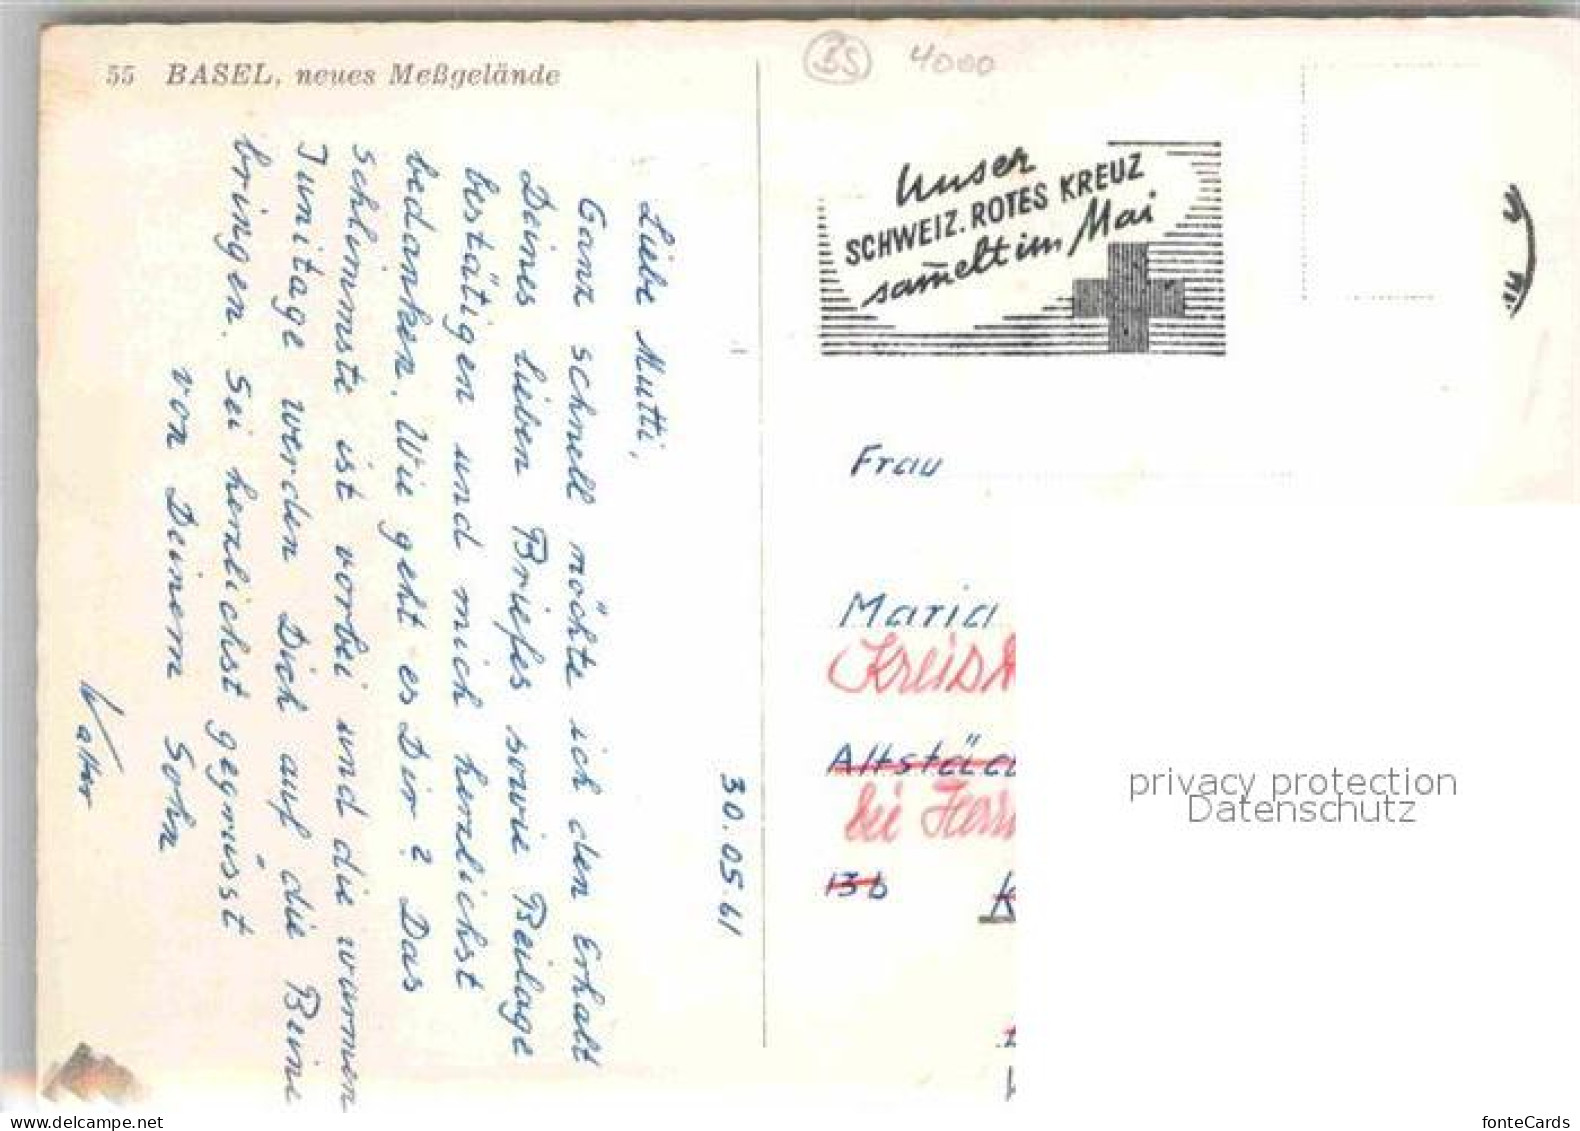 55 BASEL, neues Meßgelände
BS 4000
Unser
SCHWEIZ. ROTES KREUZ
sam̄elt im Mai
30.05.61
Liebe Mutti,
Ganz schnell möchte ich den Erhalt
Deines lieben Briefes sowie Beilage
bestätigen und mich herzlichst
bedanken. Wie geht es Dir? Das
schlimmste ist vorbei und die warmen
Junitage werden Dich auf die Beine
bringen. Sei herzlichst gegrüsst
von Deinem Sohn
Walter
Frau
Maria
bei Herrn
13b
privacy protection
Datenschutz
fonteCards